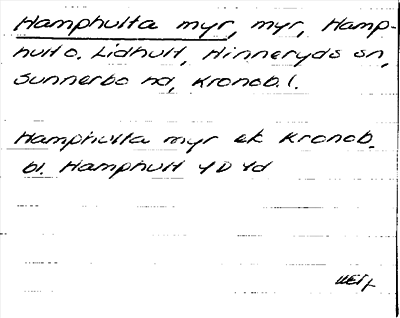 Hamphulta myr, myr, Hamp-
hult o. Lidhult, Hinneryds sn,
Sunnerbo hd, Kronob. l.
Hamphulta myr ek Kronob.
bl. Hamphult 4 D 4d